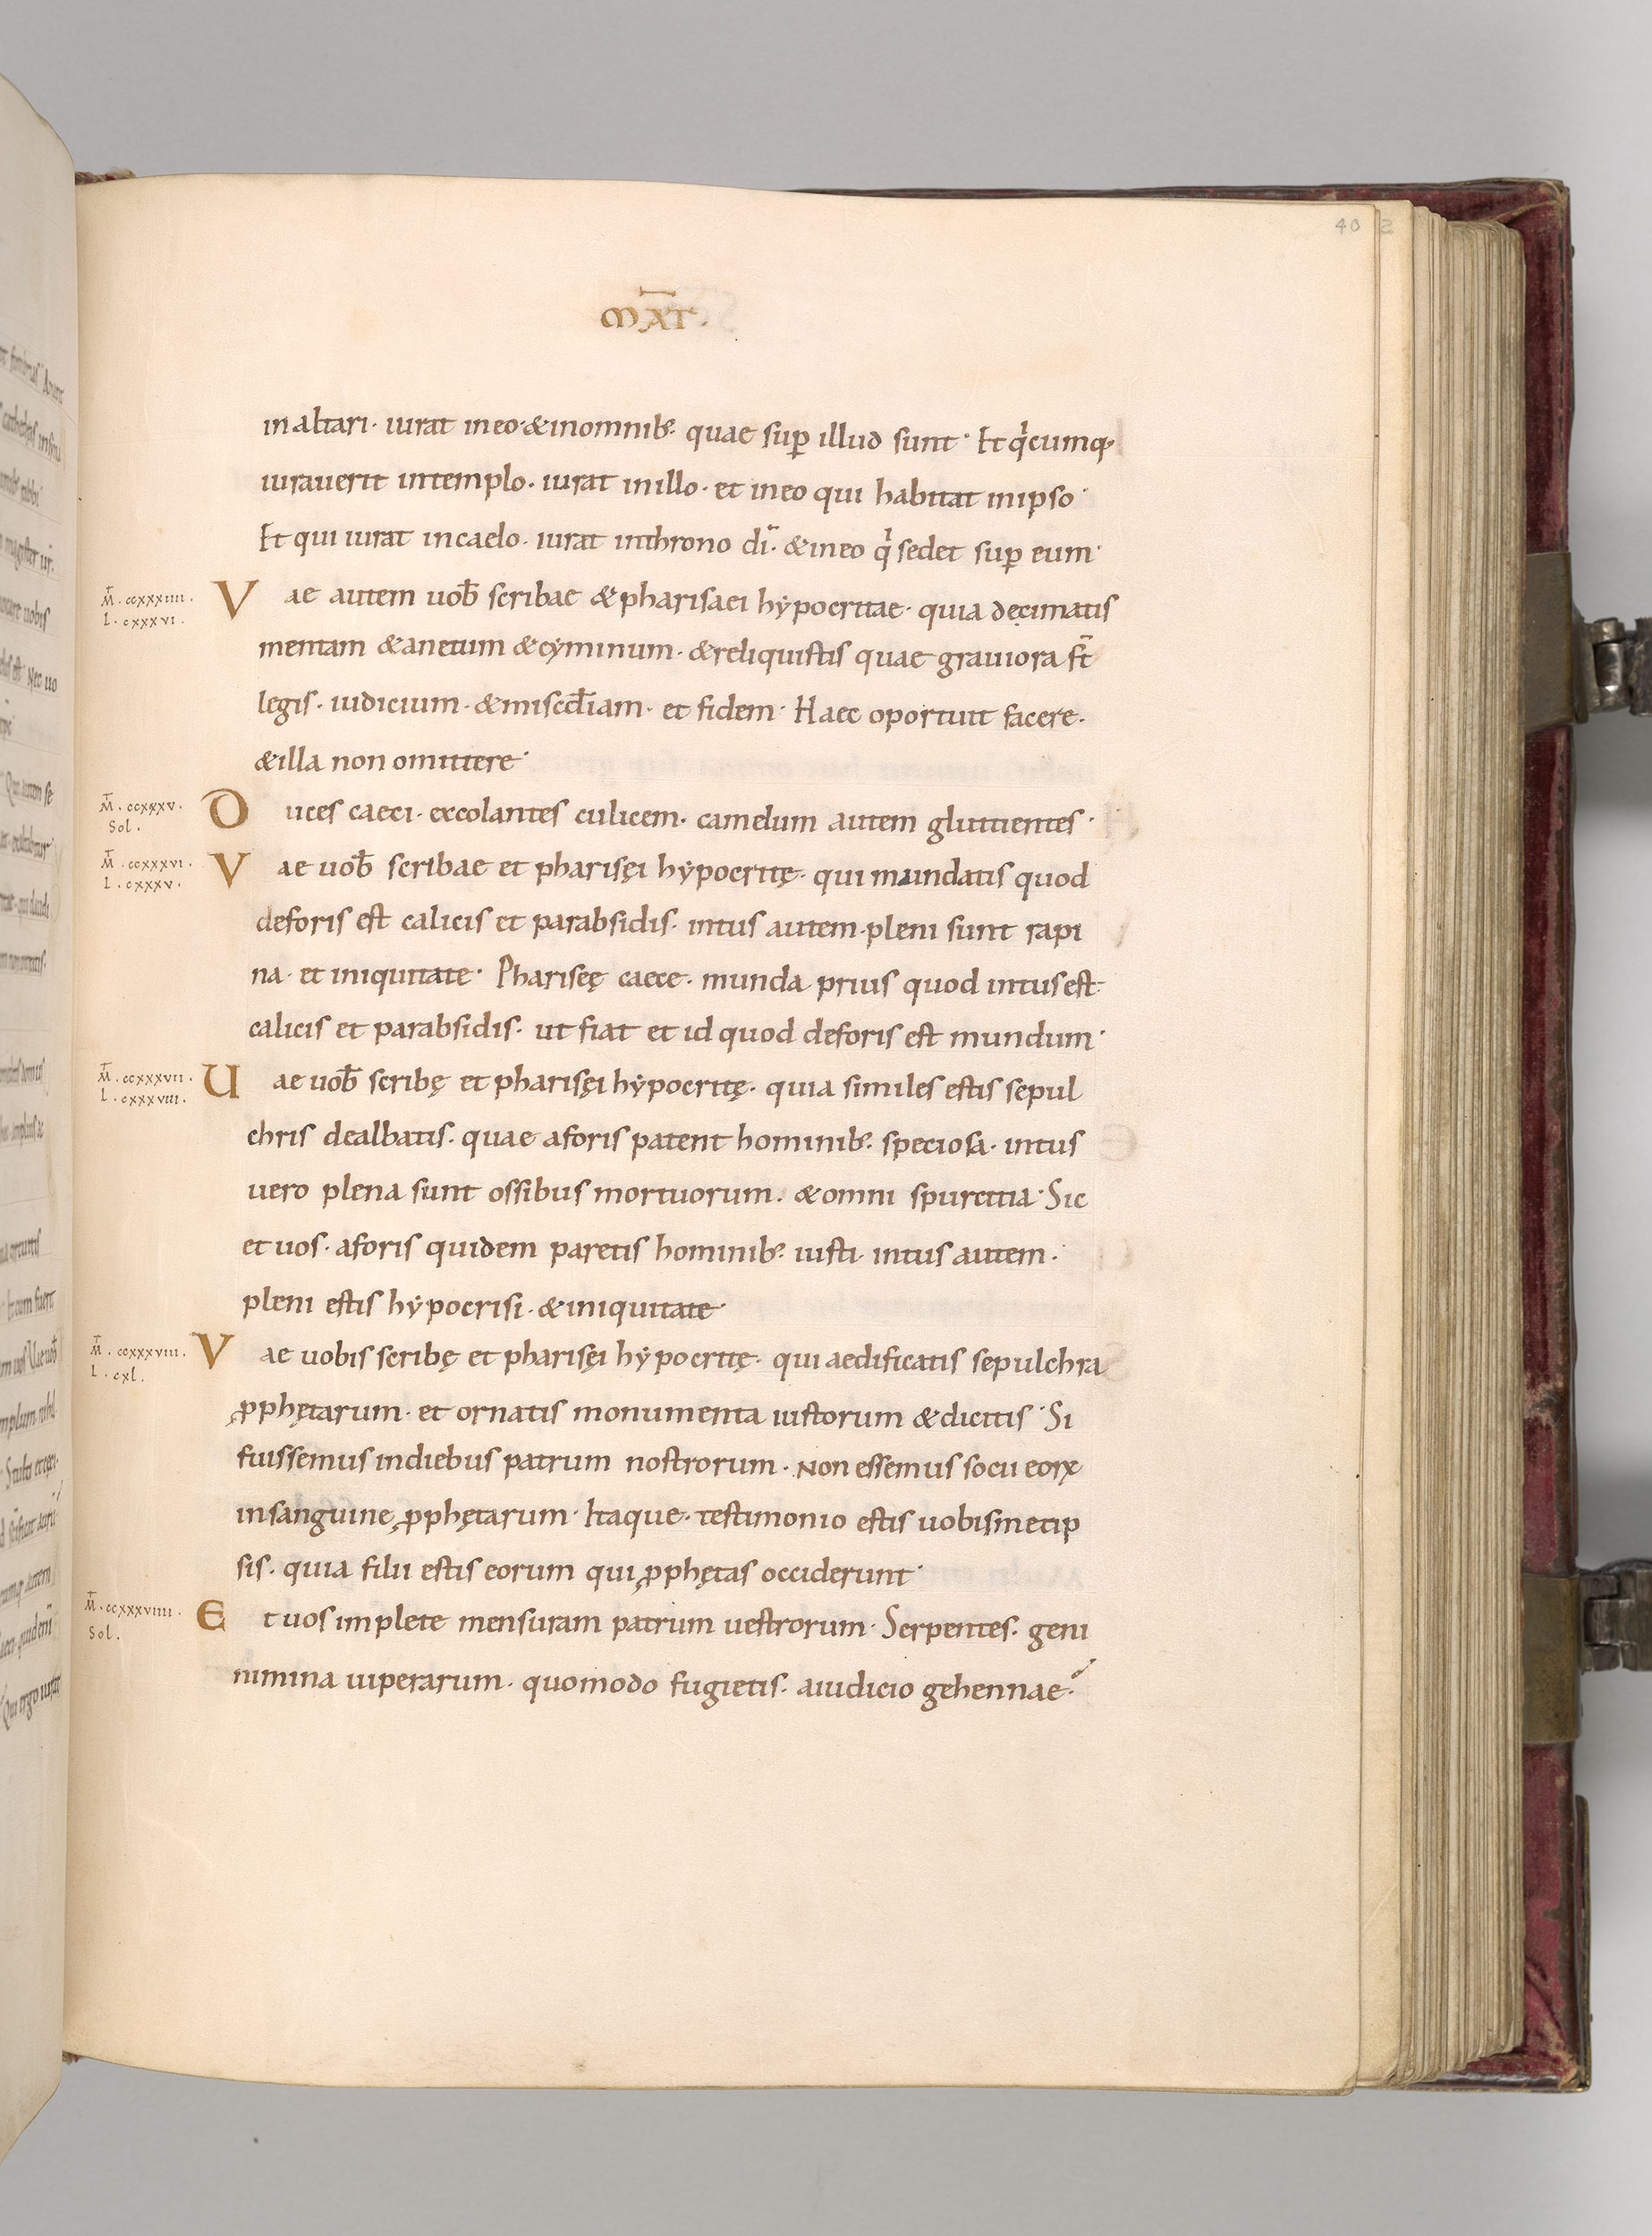 40 2
MAT̅.
in altari· iurat in eo·&inomnib; quae sup̲ illud sunt· Et q̍cumq;
iurauerit intemplo· iurat inillo· et ineo qui habitat inipso·
Et qui iurat incaelo· iurat inthrono dī· &ineo q̍ sedet sup̲ eum·
M̄· ccxxxiiii·
L· cxxxvi·
Vae autem uob̄ scribae &pharisaei hẏpocritae· quia decimatis
mentam &anetum &cẏminum· &reliquistis quae grauiora st̄
legis· iudicium· &miscd̄iam· et fidem· Haec oportuit facere·
&illa non omittere·
M̄· ccxxxv·
Sol·
Duces caeci· excolantes culicem· camelum autem gluttientes·
M̄· ccxxxvi·
L· cxxxv·
Vae uob̄ scribae et pharisęi hẏpocritę· qui mundatis quod
deforis est calicis et parabsidis· intus autem·pleni sunt rapi
na· et iniquitate· Phariseę caece· munda prius quod intus est·
calicis et parabsidis· ut fiat et id quod deforis est mundum·
M̄· ccxxxvii·
L· cxxxviii·
Uae uob̄ scribę et pharisęi hẏpocritę· quia similes estis sepul
chris dealbatis· quae aforis patent hominib; speciosa· intus
uero plena sunt ossibus mortuorum· &omni spurcitia· Sic
et uos· aforis quidem paretis hominib; iusti· intus autem·
pleni estis hẏpocrisi· &iniquitate·
M̄· ccxxxviii·
L· cxl·
Vae uobis scribę et pharisęi hẏpocritę· qui aedificatis sepulchra
ꝓphętarum· et ornatis monumenta iustorum &dicitis· Si
fuissemus indiebus patrum nostrorum· Non essemus socii eorꝝ
insanguine ꝓphętarum· Itaque· testimonio estis uobismetip
sis· quia filii estis eorum qui ꝓphętas occiderunt·
M̄· ccxxxviiii·
Sol·
Et uos implete mensuram patrum uestrorum· Serpentes· geni
nimina uiperarum· quomodo fugietis· aiudicio gehennae·?